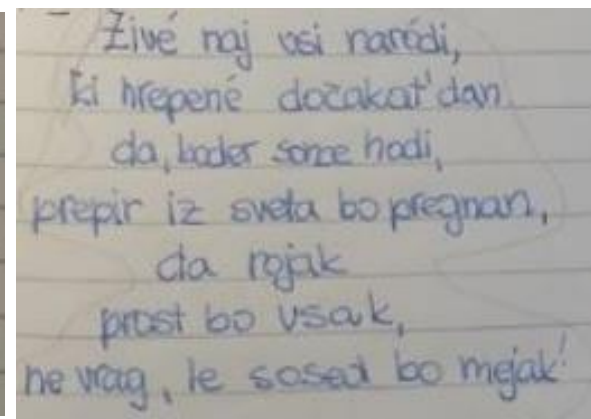 Živé naj vsi naródi,
ki hrepené dočakat' dan
da, koder sonce hodi,
prepir iz sveta bo pregnan,
da rojak
prost bo vsak,
ne vrag, le sosed bo mejak!